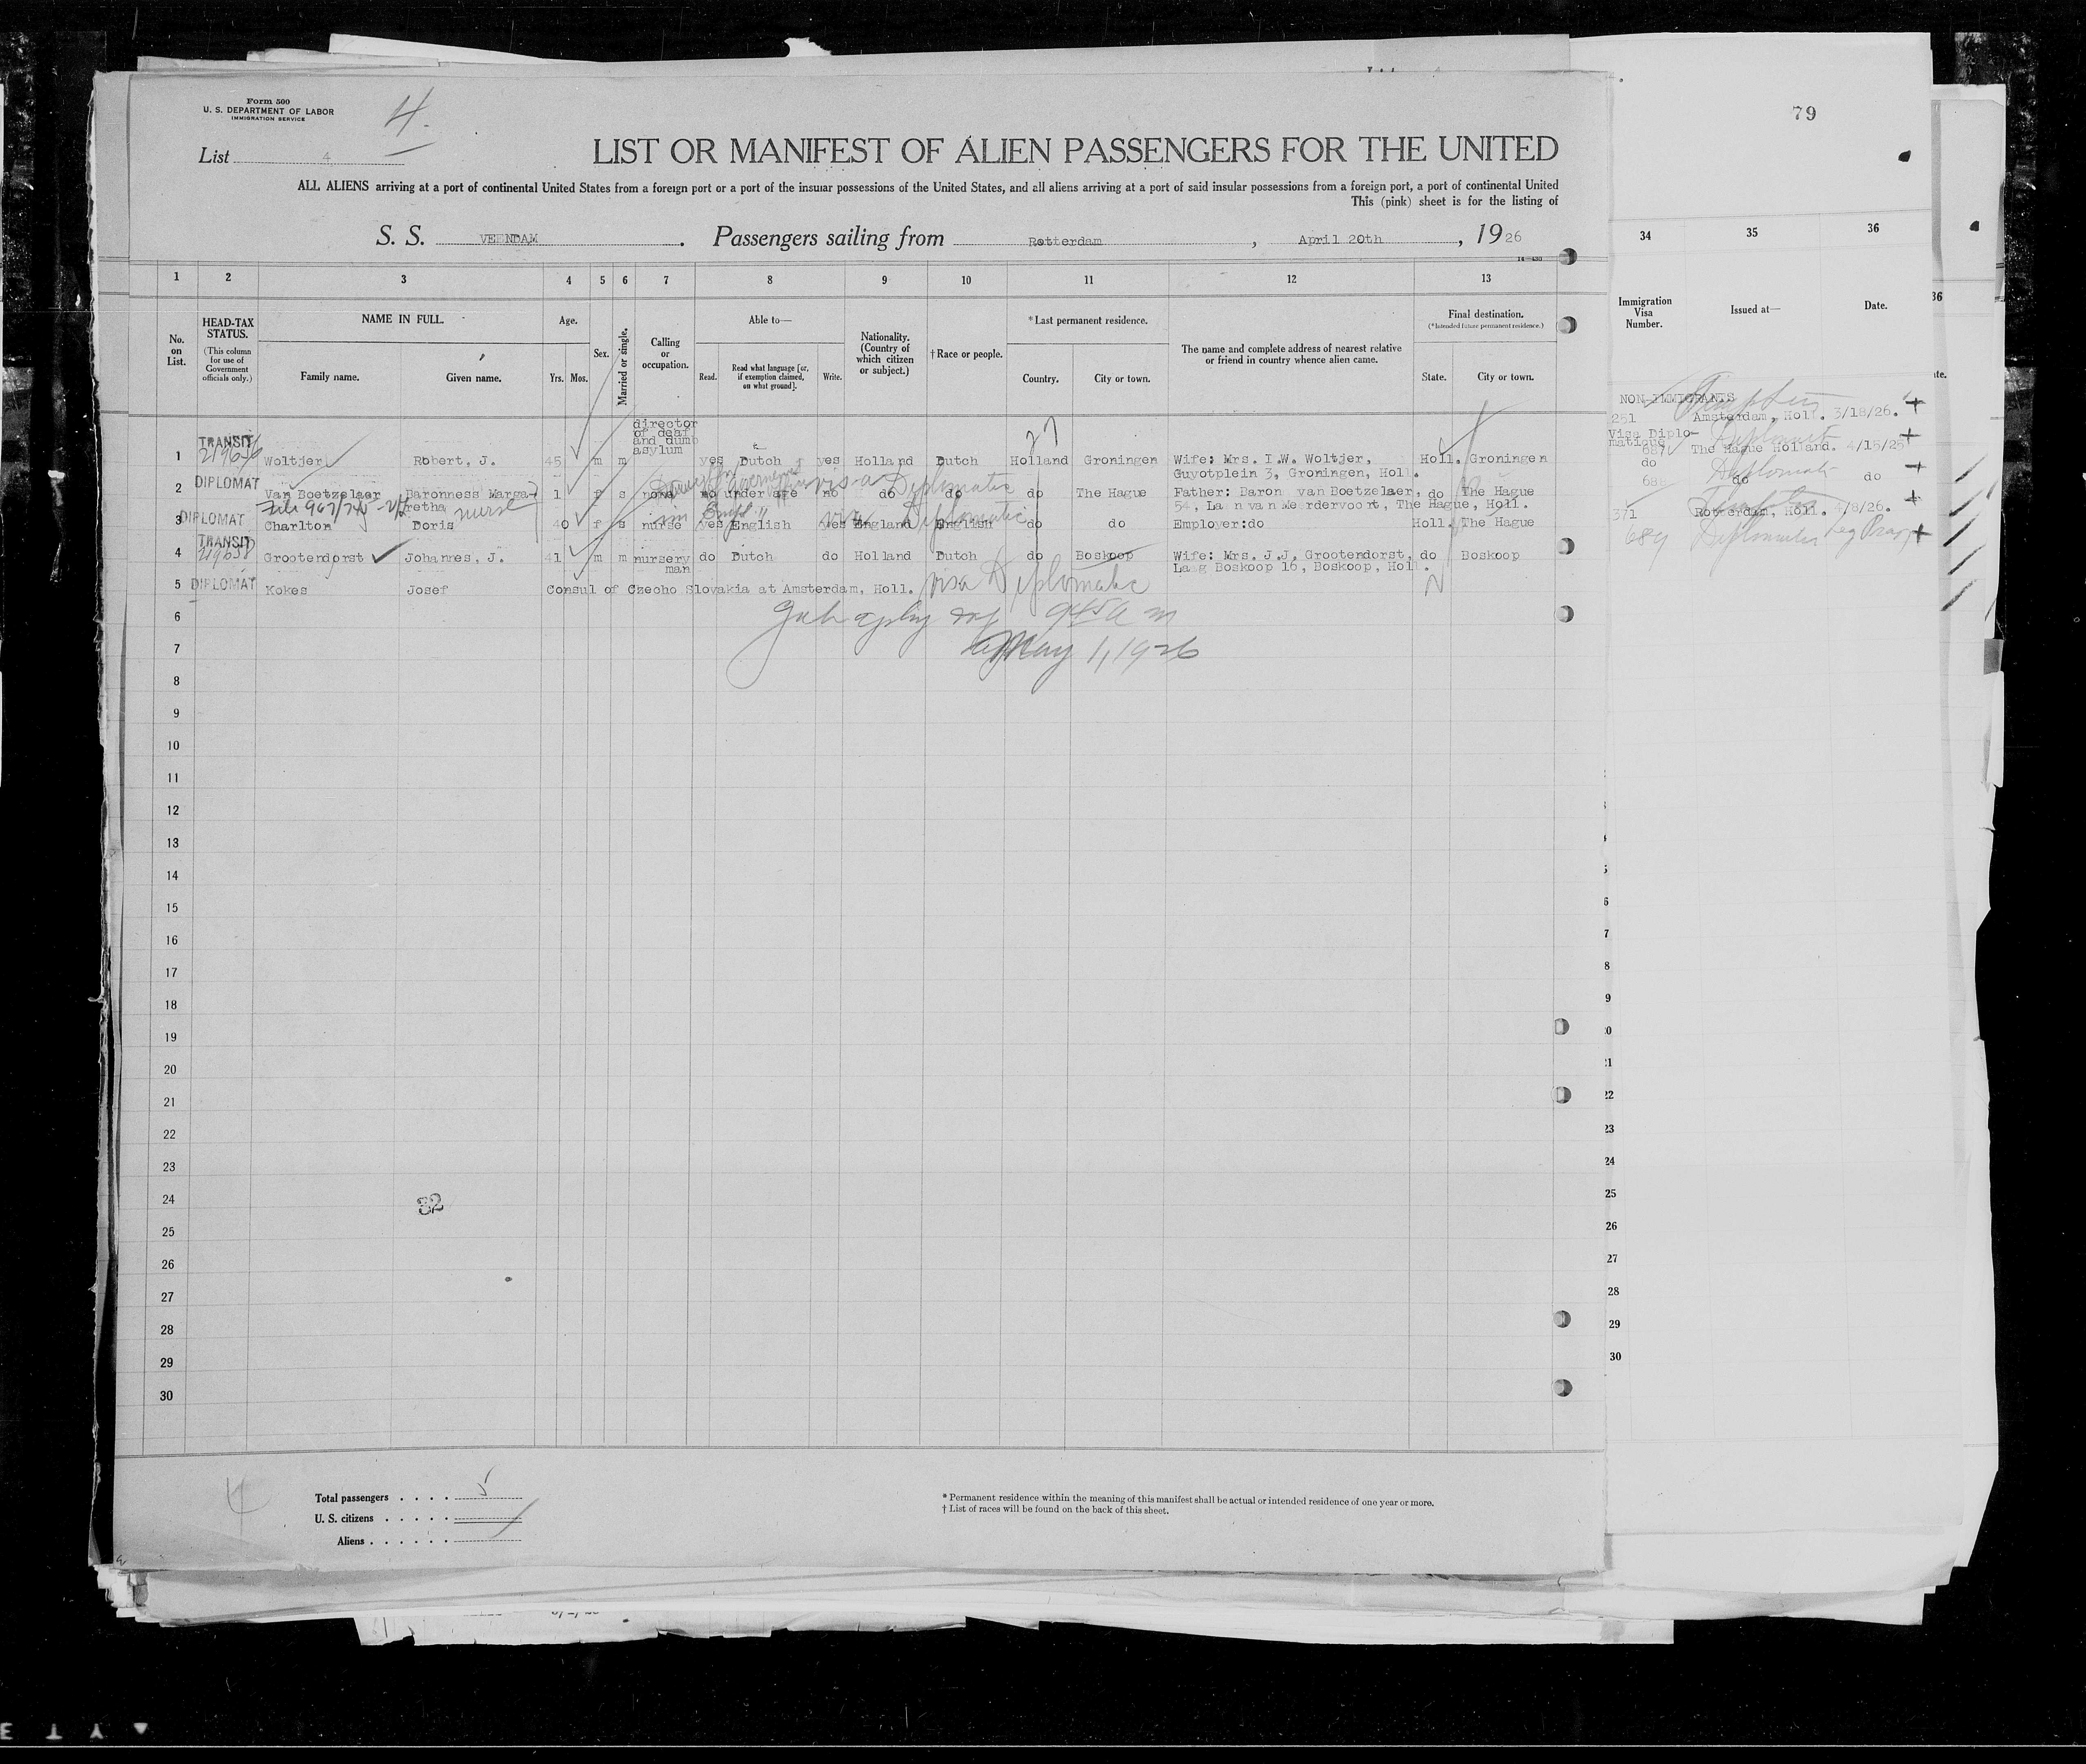 Form 500
U. S. DEPARTMENT OF LABOR
IMMIGRATION SERVICE
4.
79
List 4
LIST OR MANIFEST OF ALIEN PASSENGERS FOR THE UNITED
ALL ALIENS arriving at a port of continental United States from a foreign port or a port of the insular possessions of the United States, and all aliens arriving at a port of said insular possessions from a foreign port, a port of continental United
This (pink) sheet is for the listing of
S. S. VEENDAM . Passengers sailing from Rotterdam , April 20th , 1926
1 2 3 4 5 6 7 8 9 10 11 12 13
34 35 36
No. on List.
HEAD-TAX STATUS.
(This column for use of Government officials only.)
NAME IN FULL.
Family name.
Given name.
Age.
Yrs. Mos.
Sex.
Married or single.
Calling or occupation.
Able to—
Read.
Read what language [or, if exemption claimed, on what ground].
Write.
Nationality. (Country of which citizen or subject.)
†Race or people.
*Last permanent residence.
Country.
City or town.
The name and complete address of nearest relative or friend in country whence alien came.
Final destination.
(*Intended future permanent residence.)
State.
City or town.
Immigration Visa Number.
Issued at—
Date.
NON-IMMIGRANTS
251 Amsterdam, Holl. 3/18/26.
Visa Diplo-
matique
687 The Hague Holland. 4/15/25
do Diplomat
68 do do
371 Rotterdam, Holl. 4/8/26.
689
27
TRANSIT
director
of deaf
and dumb
asylum
1 Woltjer Robert, J. 45 m m yes Dutch yes Holland Dutch Holland Groningen Wife: Mrs. I.W. Woltjer, Holl. Groningen
Guyotplein 3, Groningen, Holl.
DIPLOMAT
visa Diplomatic
2 Van Boetzelaer Baronness Marga-
retha 1 f s none no under age no do do do The Hague Father: Baron van Boetzelaer, do The Hague
54, Laan van Meerdervoort, The Hague, Holl.
nurse
DIPLOMAT
visa Diplomatic
3 Charlton Doris 40 f s nurse yes English yes England English do do Employer:do Holl. The Hague
TRANSIT
219658
4 Grootendorst Johannes, J. 41 m m nursery
man do Dutch do Holland Dutch do Boskoop Wife: Mrs. J.J. Grootendorst, do Boskoop
Laag Boskoop 16, Boskoop, Holl.
DIPLOMAT
5 Kokes Josef Consul of Czecho Slovakia at Amsterdam, Holl. visa Diplomatic
6
7 May 1, 1926
8
9
10
11
12
13
14
15
16
17
18
19
20
21
22
23
24
32
25
26
27
28
29
30
4
Total passengers . . . . 5
U. S. citizens . . . . .
Aliens . . . . . .
* Permanent residence within the meaning of this manifest shall be actual or intended residence of one year or more.
† List of races will be found on the back of this sheet.